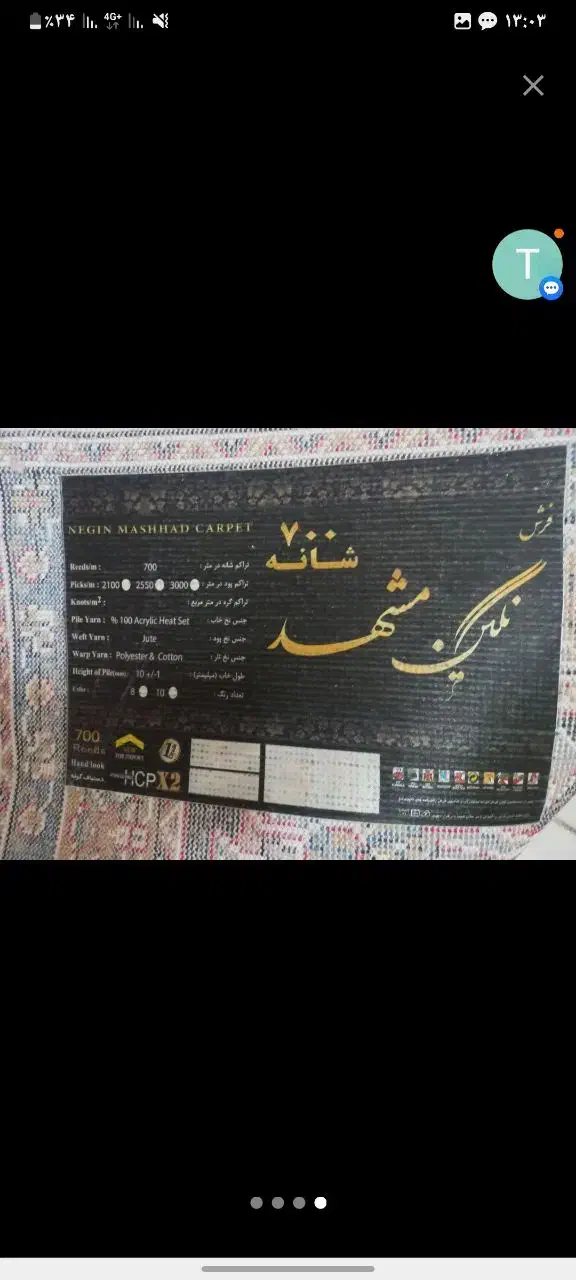 ٪۳۴ 4G+ ۱۳:۰۳
T
NEGIN MASHHAD CARPET
Reeds/m : 700 تراکم شانه در متر :
Picks/m : 2100 2550 3000 تراکم پود در متر :
Knots/m² : تراکم گره در متر مربع :
Pile Yarn : % 100 Acrylic Heat Set جنس نخ خاب :
Weft Yarn : Jute جنس نخ پود :
Warp Yarn : Polyester & Cotton جنس نخ تار :
Height of Pile(mm): 10 +/-1 طول خاب (میلیمتر) :
Color : 8 10 تعداد رنگ :
۷۰۰
شانه
فرش
نگین مشهد
700
Reeds
Hand look
دستباف گونه
FOR EXPORT
HCPX2